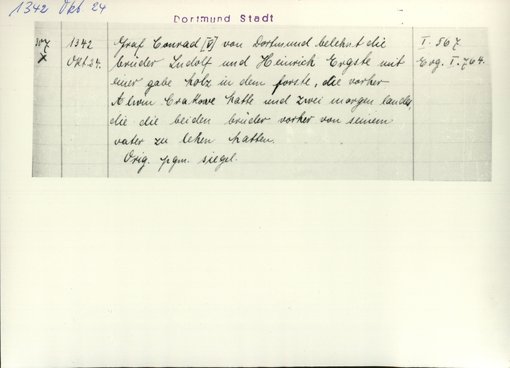 1342 Okt 24
Dortmund Stadt
307 1342 Graf Conrad [V] von Dortmund belehnt die I. 567
X Okt 24. brüder Ludolf und Heinrich Ergste mit Erg. I. 764.
einer gabe holz in dem forste, die vorher
Alwin Crakowe hatte und zwei morgen landes,
die die beiden brüder vorher von seinem
vater zu lehen hatten.
Orig. pgm. siegel.